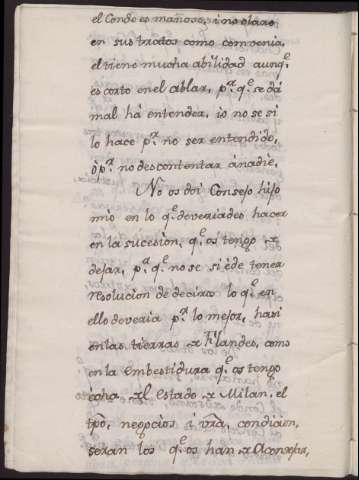 el Conde es mañoso, i no claro
en sus tratos como convenia,
el tiene mucha abilidad aunq.e
es corto en el ablar, p.r q.e se dá
mal há entender, io no se si
lo hace p.r no ser entendido,
ò p.r no descontentar ánadie,
No os doi Consejo hijo
mio en lo q.e deveriades hacer
en la sucesion, q.e os tengo de
dejar, p.r q.e no se si éde tener
resolucion de deciros lo q.e en
ello deveria p.r lo mejor, hasi
en las tierras de Flandes, como
en la embestidura q.e os tengo
écha del Estado de Milan, el
tpõ, negocios i vrã, condicion,
seran los q.e os han de Aconsejar,